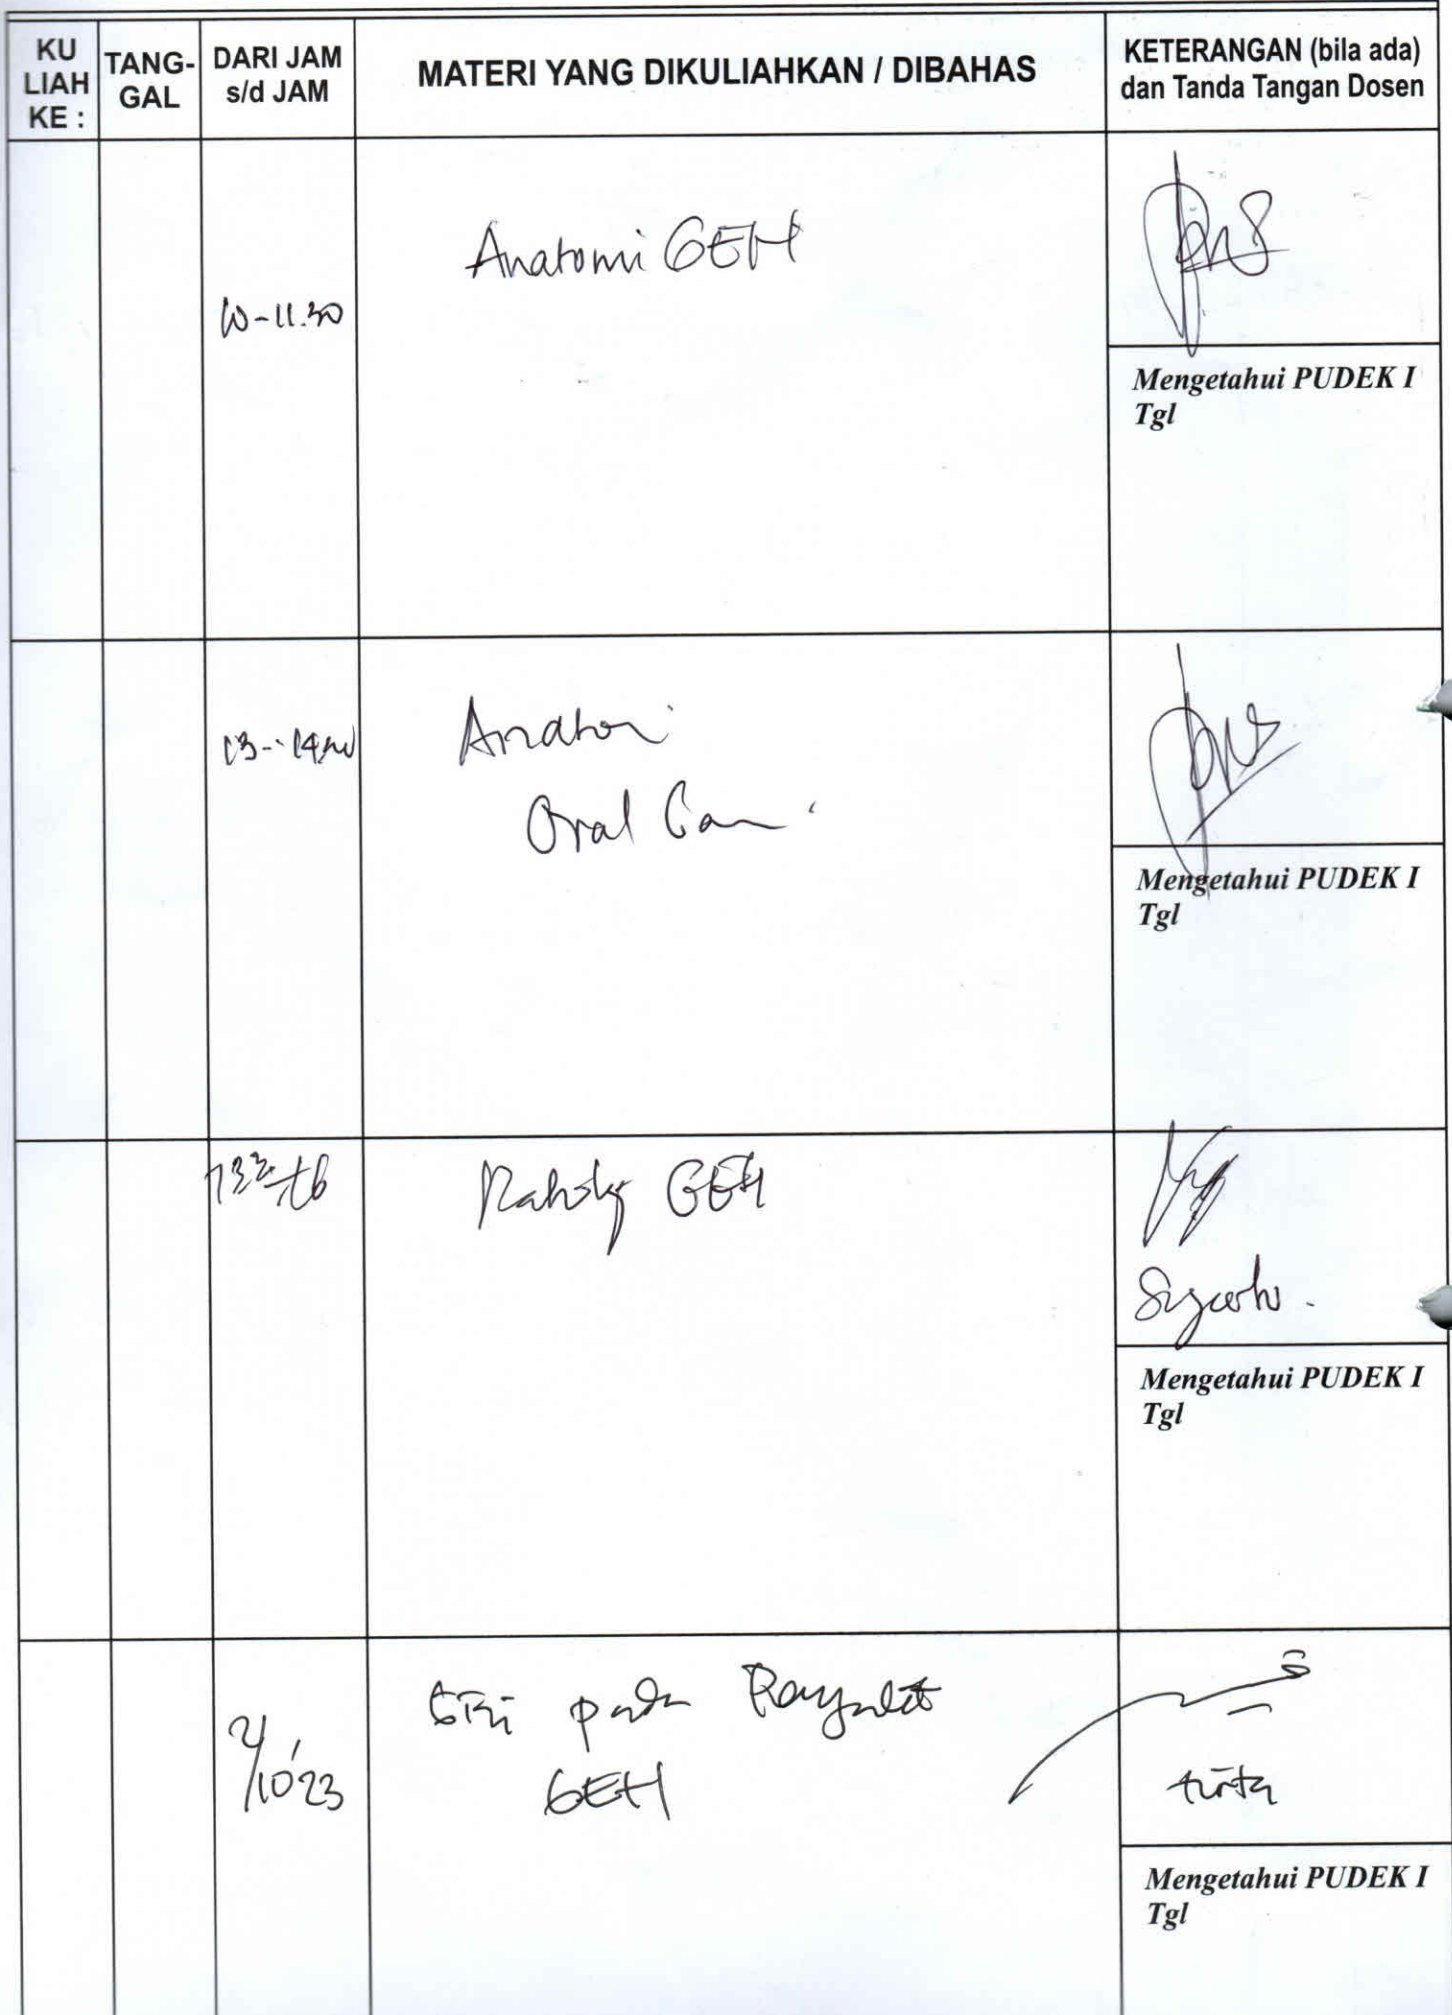 KU LIAH KE :
TANG-GAL
DARI JAM s/d JAM
MATERI YANG DIKULIAHKAN / DIBAHAS
KETERANGAN (bila ada) dan Tanda Tangan Dosen
10-11.30
Anatomi GEH
Mengetahui PUDEK I
Tgl
13-
Oral
Mengetahui PUDEK I
Tgl
GEH
Mengetahui PUDEK I
Tgl
2/10'23
pada
GEH
tirta
Mengetahui PUDEK I
Tgl